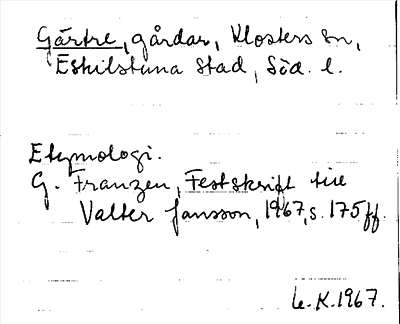 Gärtre, gårdar, Klosters sn,
Eskilstuna stad, Söd. l.
Etymologi.
G. Franzén, Festskrift till
Valter Jansson, 1967, s. 175 ff.
L.K. 1967.